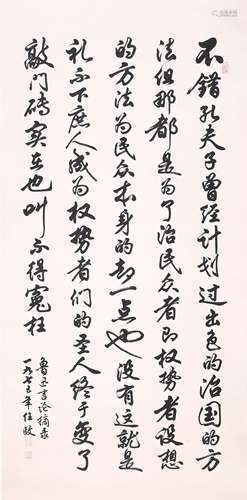 不错孔夫子曾经计划过出色的治国的方
法但那都是为了治民众者即权势者设想
的方法为民众本身的却一点也没有这就是
礼不下庶人成为权势者们的圣人终于变了
敲门砖实在也叫不得冤枉
鲁迅言论摘录
一九七五年任政